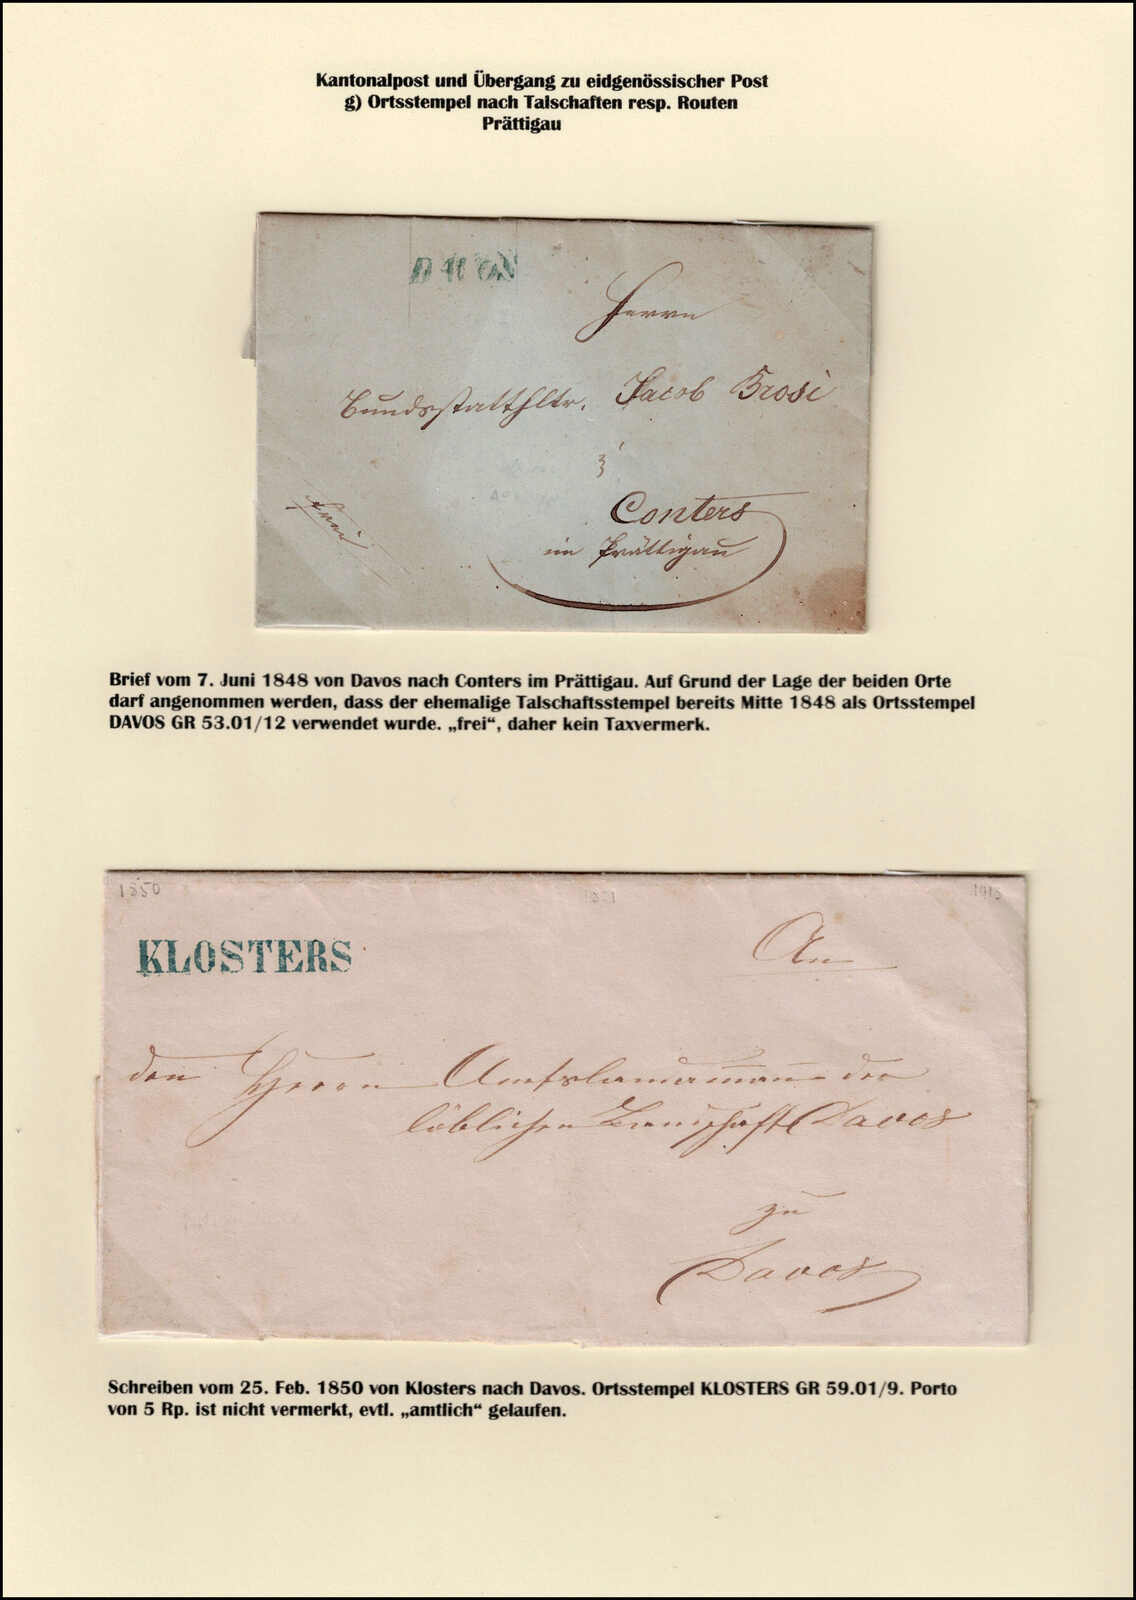 Kantonalpost und Übergang zu eidgenössischer Post
g) Ortsstempel nach Talschaften resp. Routen
Prättigau
Herrn
Bundsstatthltr. Jacob Brosi
Conters
im Prättigau
frei
Brief vom 7. Juni 1848 von Davos nach Conters im Prättigau. Auf Grund der Lage der beiden Orte
darf angenommen werden, dass der ehemalige Talschaftsstempel bereits Mitte 1848 als Ortsstempel
DAVOS GR 53.01/12 verwendet wurde. „frei“, daher kein Taxvermerk.
1850
KLOSTERS
An
den Herrn Amtslandammann der
löblichen Landschaft Davos
zu
Davos
Schreiben vom 25. Feb. 1850 von Klosters nach Davos. Ortsstempel KLOSTERS GR 59.01/9. Porto
von 5 Rp. ist nicht vermerkt, evtl. „amtlich“ gelaufen.